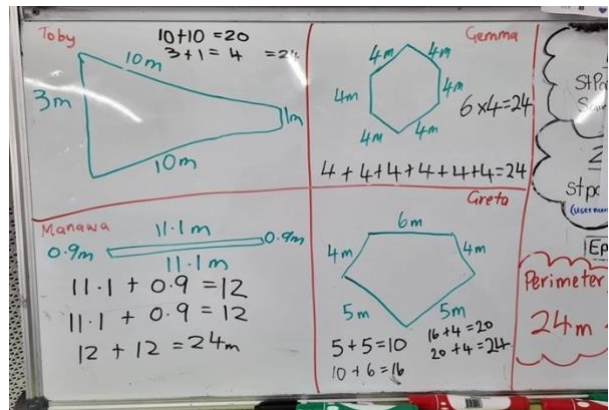 Toby
10+10=20
3+1=4 =24
10m
3m
1m
10m
Gemma
4m
4m
4m
4m
4m
4m
6×4=24
4+4+4+4+4+4=24
Manawa
11.1m
0.9m
0.9m
11.1m
11.1 + 0.9 = 12
11.1 + 0.9 = 12
12 + 12 = 24m
Greta
6m
4m
4m
5m
5m
5+5=10
10+6=16
16+4=20
20+4=24
2
Perimeter
24m